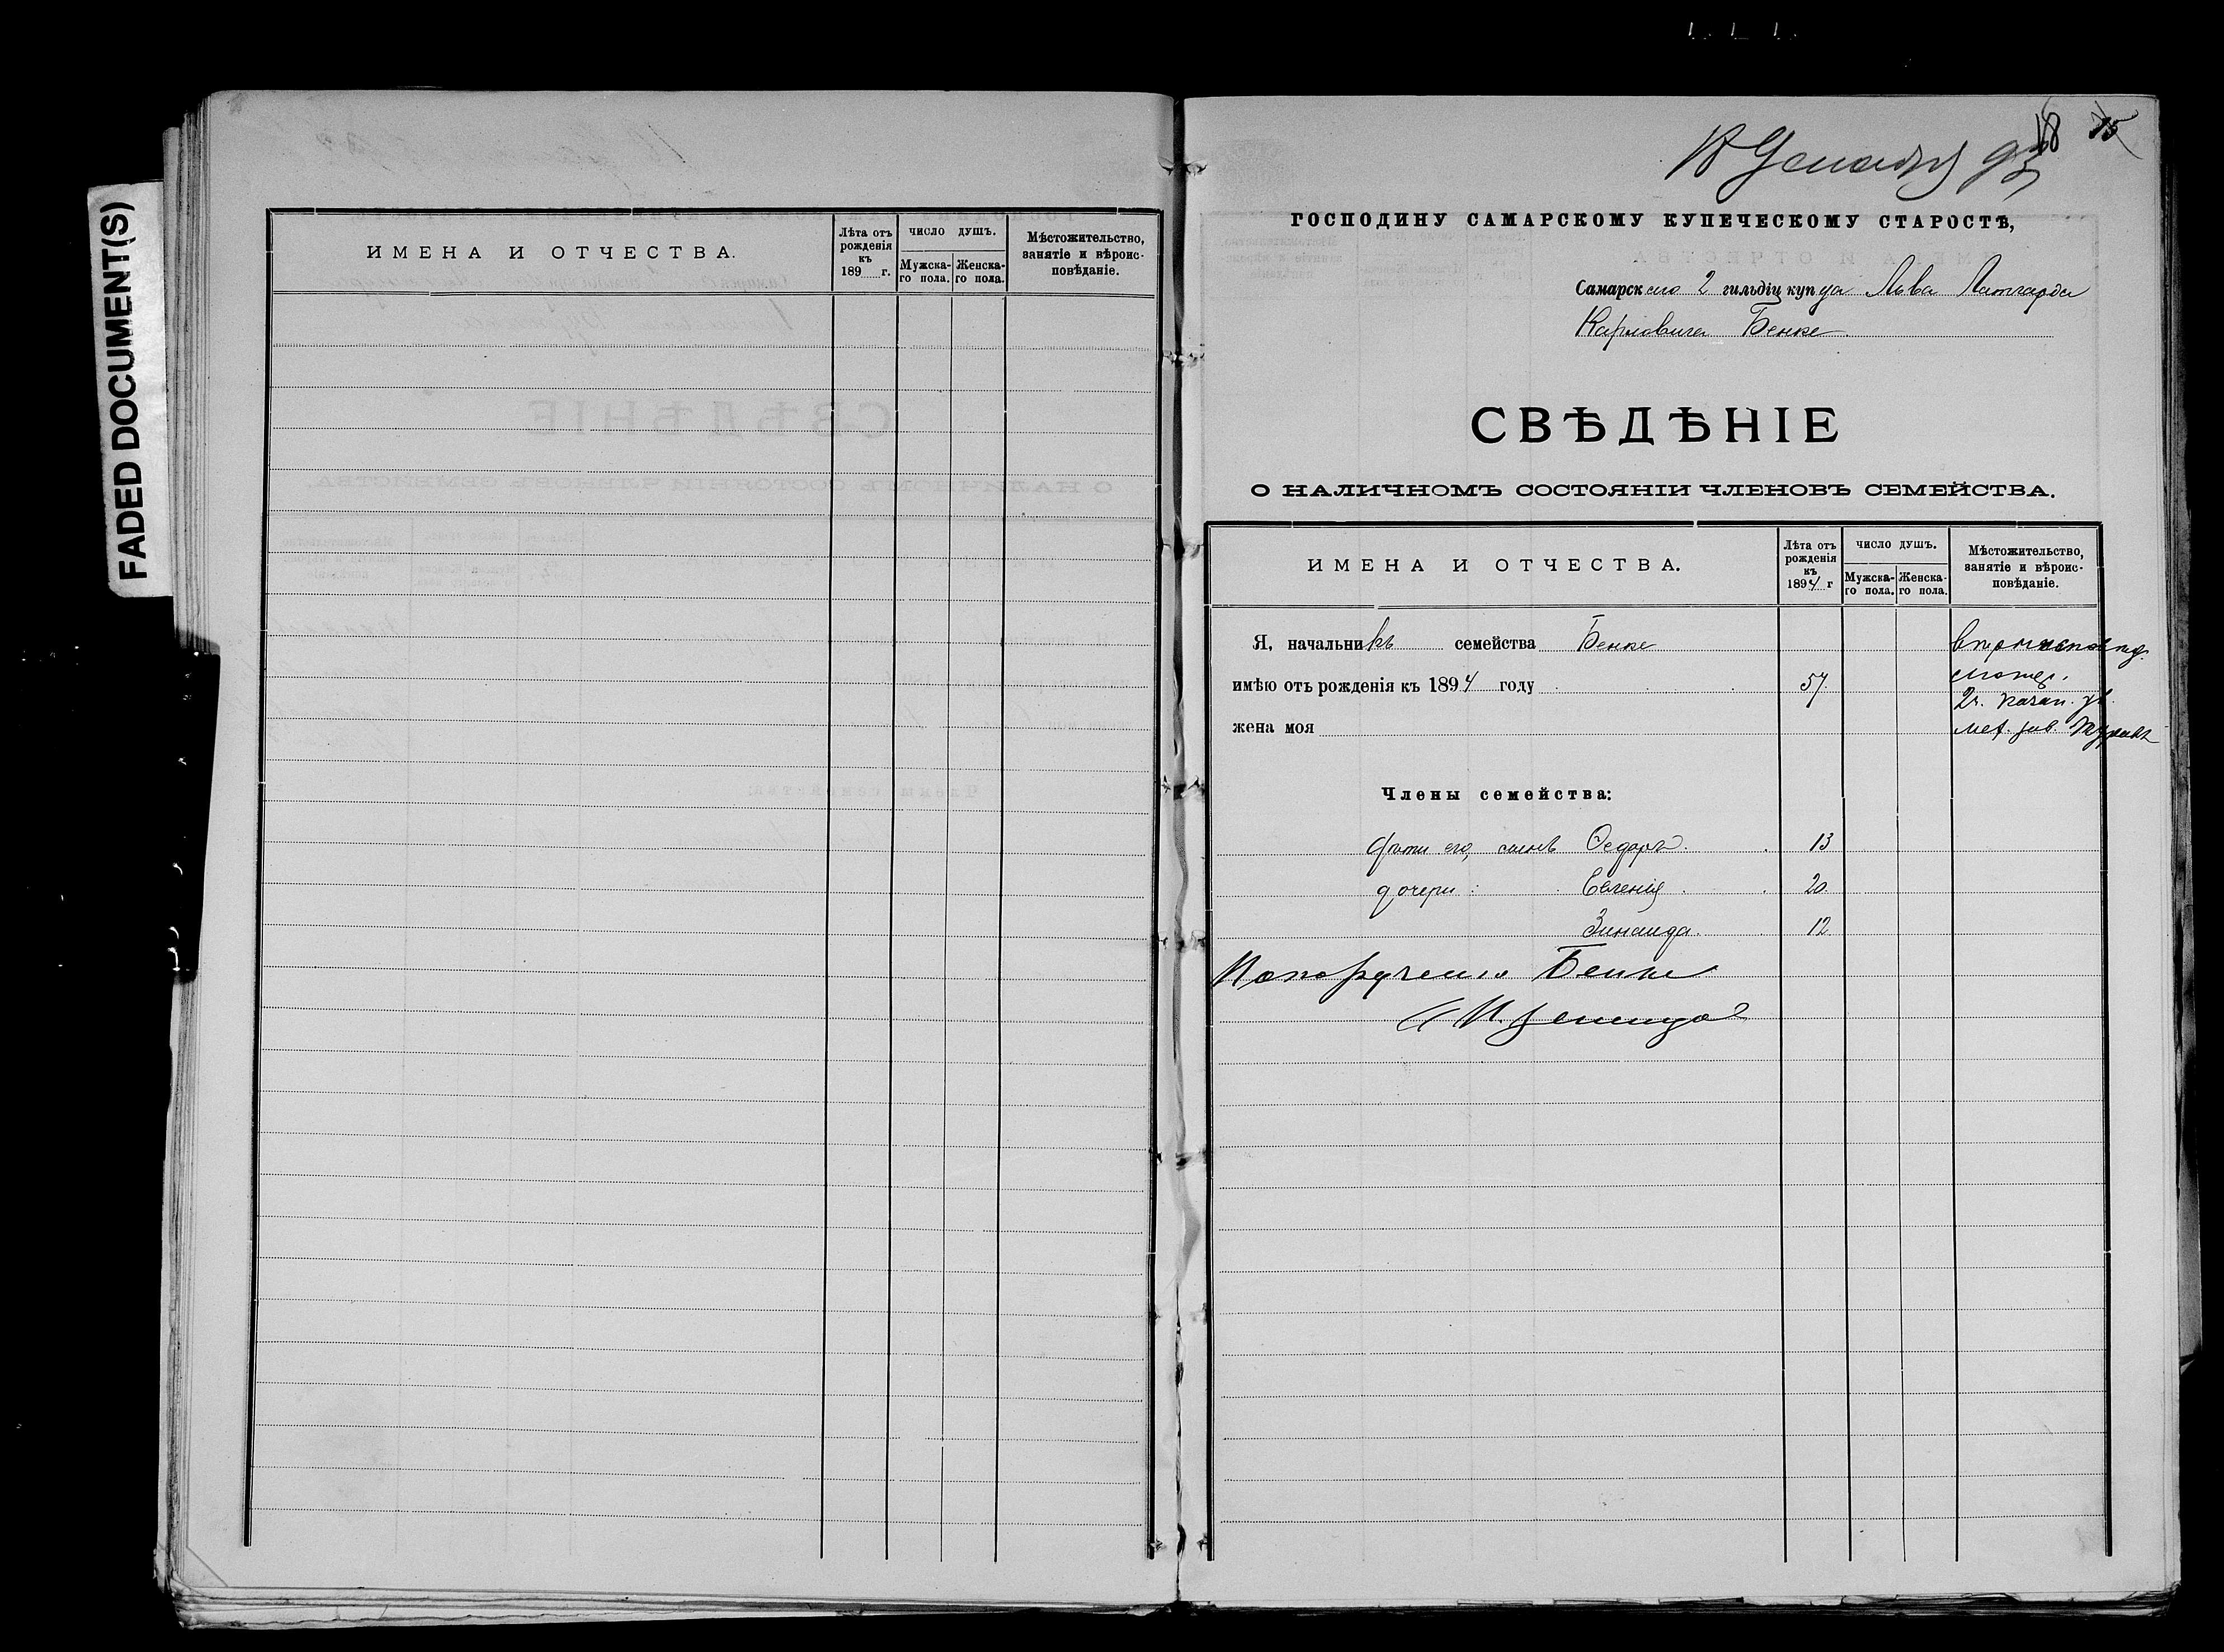 FADED DOCUMENT(S)
ИМЕНА И ОТЧЕСТВА.
Лѣта отъ рожденія къ 189 г.
ЧИСЛО ДУШЪ.
Мужска-го пола.
Женска-го пола.
Мѣстожительство, занятіе и вѣроис-повѣданіе.
68 15
18 Декабря 93
ГОСПОДИНУ САМАРСКОМУ КУПЕЧЕСКОМУ СТАРОСТѢ,
Самарскаго 2 гильдіи купца Льва
Карловича Бенке
СВѢДѢНІЕ
О НАЛИЧНОМЪ СОСТОЯНІИ ЧЛЕНОВЪ СЕМЕЙСТВА.
ИМЕНА И ОТЧЕСТВА.
Лѣта отъ рожденія къ 1894 г
ЧИСЛО ДУШЪ.
Мужска-го пола.
Женска-го пола.
Мѣстожительство, занятіе и вѣроис-повѣданіе.
Я, начальникъ семейства Бенке
имѣю отъ рожденія къ 1894 году 57.
жена моя
Члены семейства:
Дѣти его, сынъ Ѳедоръ. 13
дочери: Евгенія 20.
Зинаида. 12
По порученію Бенке